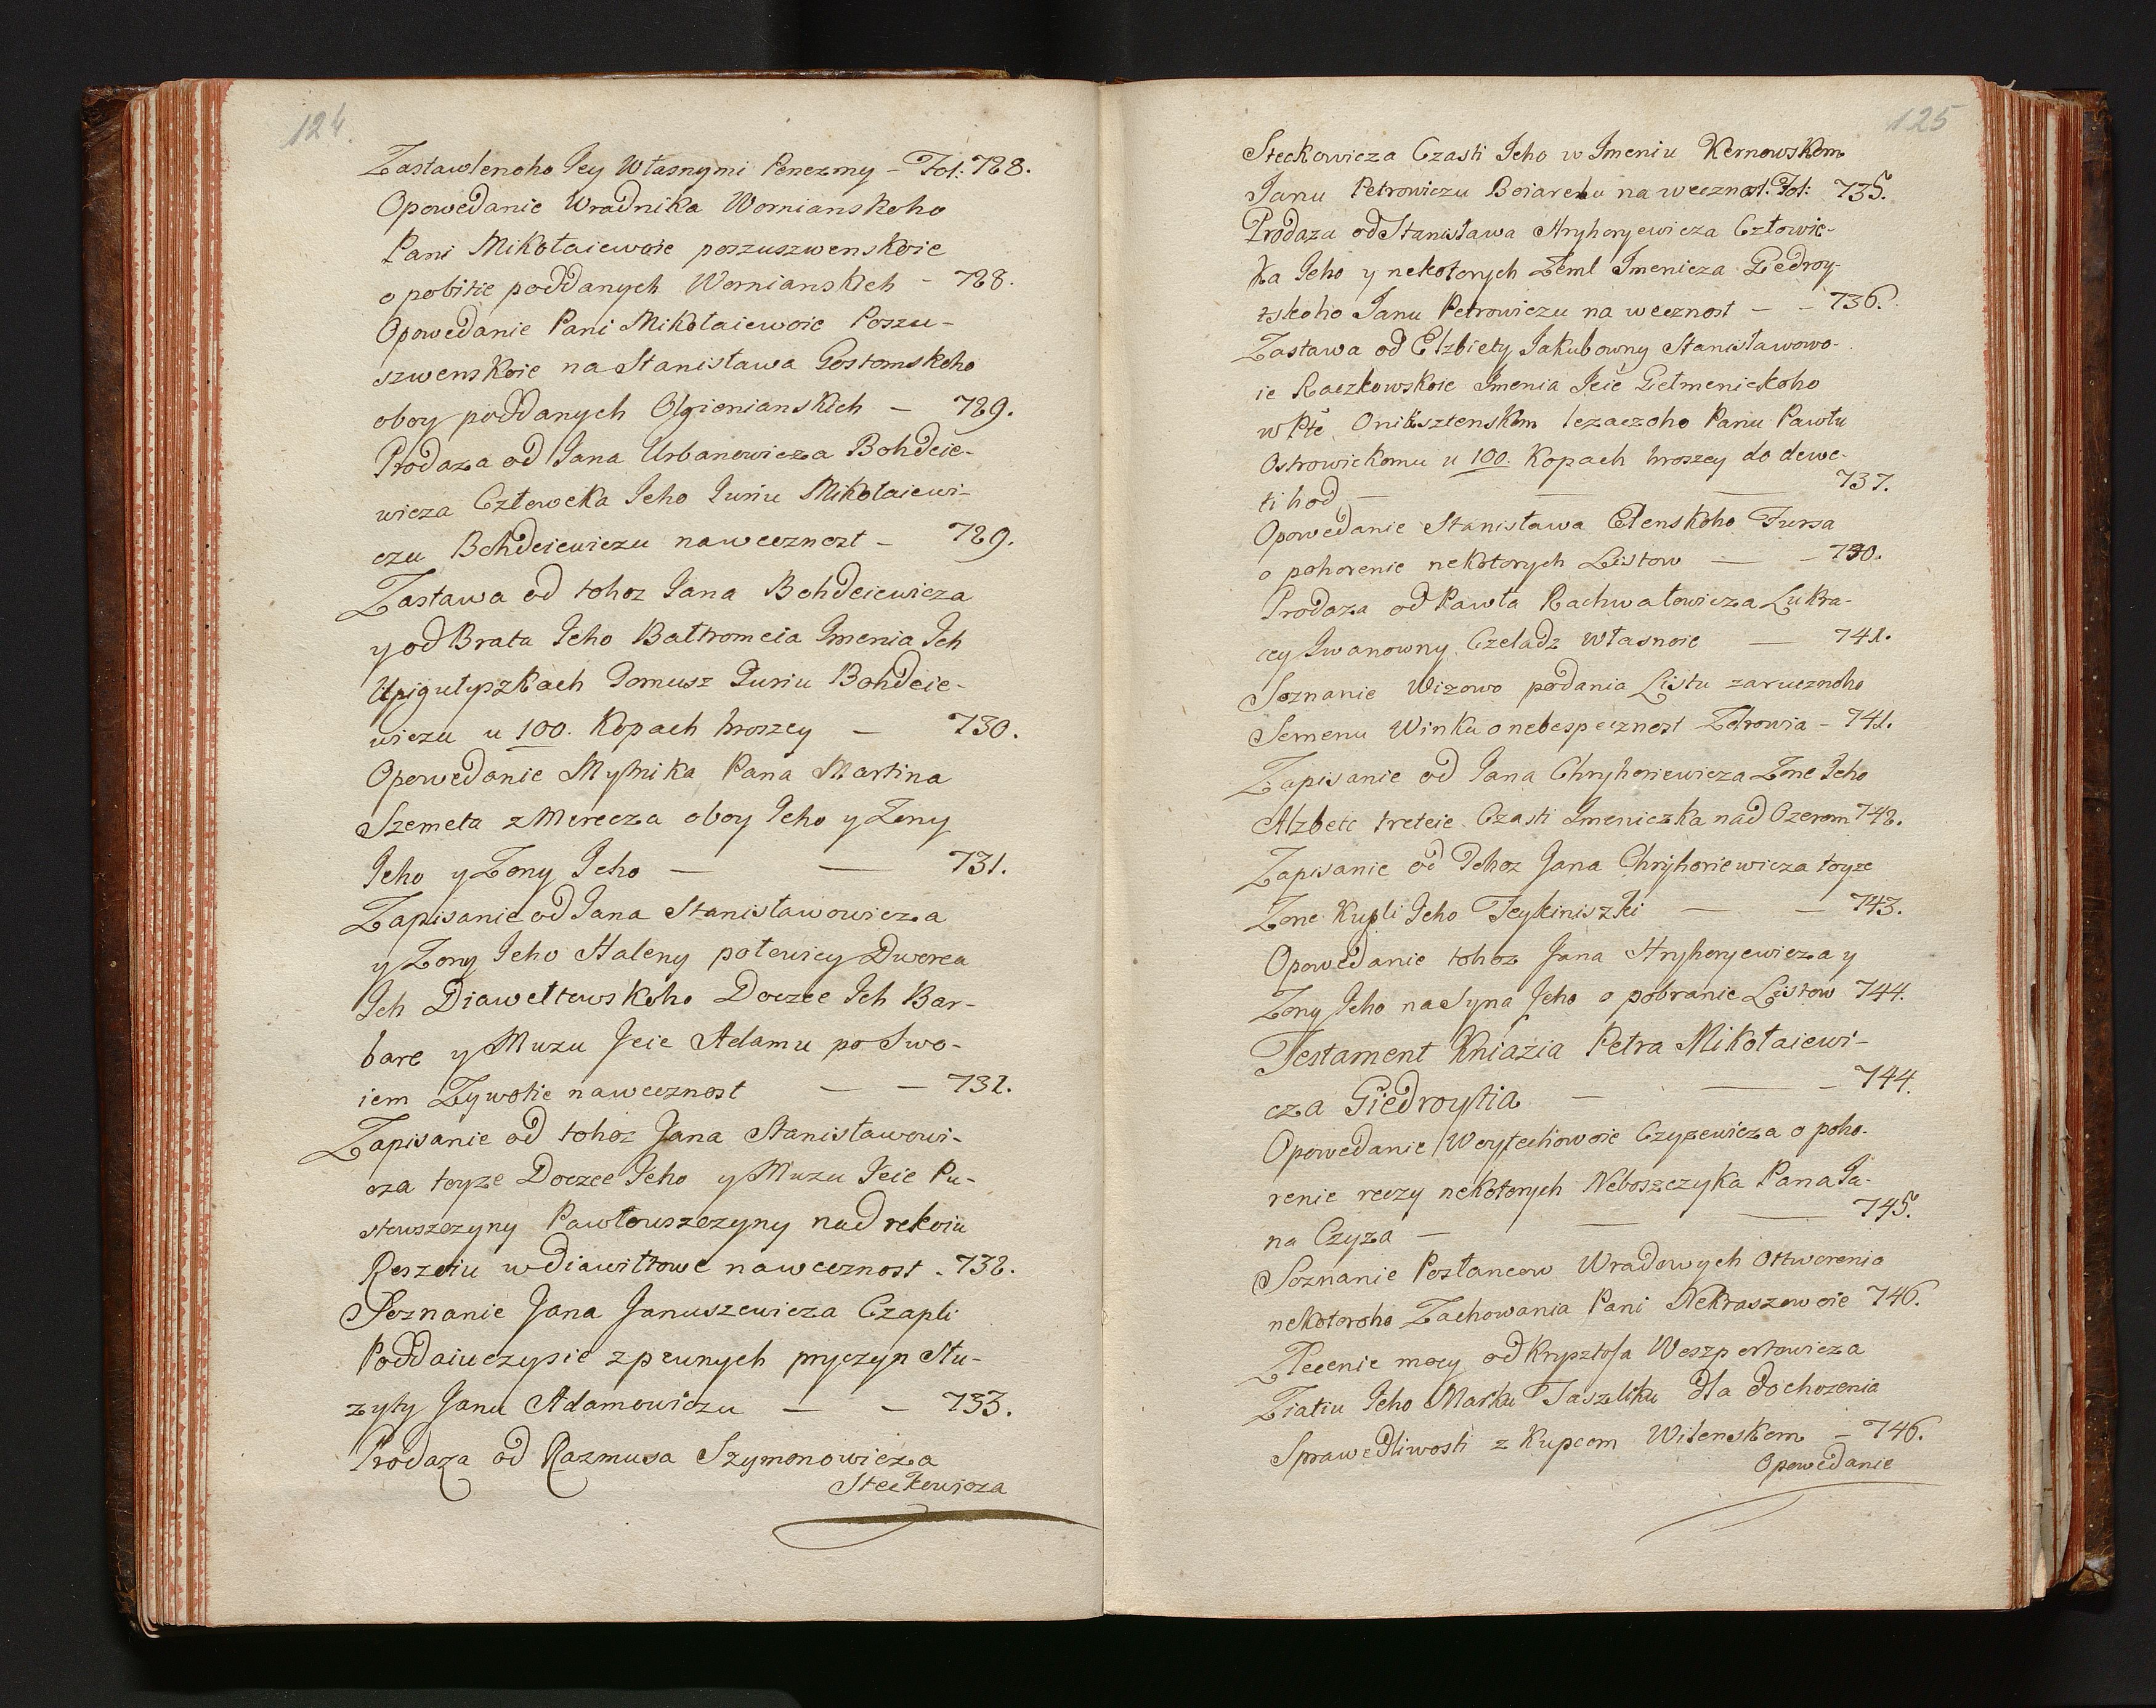 124.
Zastawlenoho Jey Własnymi Penezmy – Fol: 728.
Opowedanie Wradnika Wornianskoho
Pani Mikołaiewoie poszuszwenskoie
o pobitie poddanych Wornianskich – 728.
Opowedanie Pani Mikołaiewoie Poszu-
szwenskoie na Stanisława Gostomskoho
oboy poddanych Olgienianskich – 729.
Prodaza od Jana Urbanowicza Bohdeie-
wicza Człoweka Jeho Juriu Mikołaiewi-
czu Bohdeiewiczu na wecznost – 729.
Zastawa od tohoz Jana Bohdeiewicza
y od Brata Jeho Bałtromeia Jmenia Jch
Upigułyszkach Tomusz Juriu Bohdeie-
wiczu u 100. Kopach hroszey – 730.
Opowedanie Mytnika Pana Martina
Szemeta z Merecza oboy Jeho y Zony
Jeho y Zony Jeho — — 731.
Zapisanie od Jana Stanisławowicza
y Zony Jeho Haleny połowicy Dworca
Jch Diawełtowskoho Doczce Jch Bar-
bare y Muzu Jeie Adamu po Swo-
iem Zywotie na wecznost — – 732.
Zapisanie od tohoz Jana Stanisławowi-
cza toyze Doczce Jeho y Muzu Jeie Pu-
stowszczyny Pawłowszczyny nad rekoiu
Reszoiu w Diawiłtowe na wecznost . 732.
Soznanie Jana Januszewicza Czapli
Poddaiuczysie z pewnych pryczyn Słu-
zyty Janu Adamowiczu — – 733.
Prodaza od Razmusa Szymonowicza
Steckowicza
125
Steckowicza Czasti Jeho w Jmeniu Kernowskom
Janu Petrowiczu Boiarelu na wecznost. Fol: 735.
Prodaza od Stanisława Hryhoryewicza Człowie-
ka Jeho y nekotorych Zeml Jmenicza Gedroy-
tskoho Janu Petrowiczu na wecznost — – 736.
Zastawa od Elzbiety Jakubowny Stanisławowo-
ie Raczkowskoie Jmenia Jeie Giełmenickoho
w Ptě Oniksztenskom lezaczoho Panu Pawłu
Ostrowickomu u 100. Kopach hroszey do dewe-
ti hod — — — 737.
Opowedanie Stanisława Elenskoho Fursa
o pohorenie nekotorych Listow — – 740.
Prodaza od Pawła Rachwałowicza Lukra-
cey Jwanowny Czeladz Własnoie — 741.
Soznanie Wizowo podania Listu zarucznoho
Semenu Winku o nebespecznost Zdrowia – 741.
Zapisanie od Jana Chryhoriewicza Zone Jeho
Alzbete treteie Czasti Jmeniczka nad Ozerom 742.
Zapisanie od Tohoz Jana Chryhoriewicza toyze
Zone Kupli Jeho Teykiniszki — – 743.
Opowedanie tohoz Jana Hryhoryewicza y
Zony Jeho na Syna Jeho o pobranie Listow 744.
Testament Kniazia Petra Mikołaiewi-
cza Giedroytia — — – 744.
Opowedanie Woytechowoie Czyzewicza o poho-
renie reczy nekotorych Neboszczyka Pana Ja-
na Czyza — — — 745.
Soznanie Posłancow Wradowych Ottworenia
nekotoroho Zachowania Pani Nekraszewoie 746.
Zlecenie mocy od Krysztofa Weszpertowicza
Ziatiu Jeho Marku Taszliku dla dochozenia
Sprawedliwosti z Kupcom Wilenskom – 746.
Opowedanie